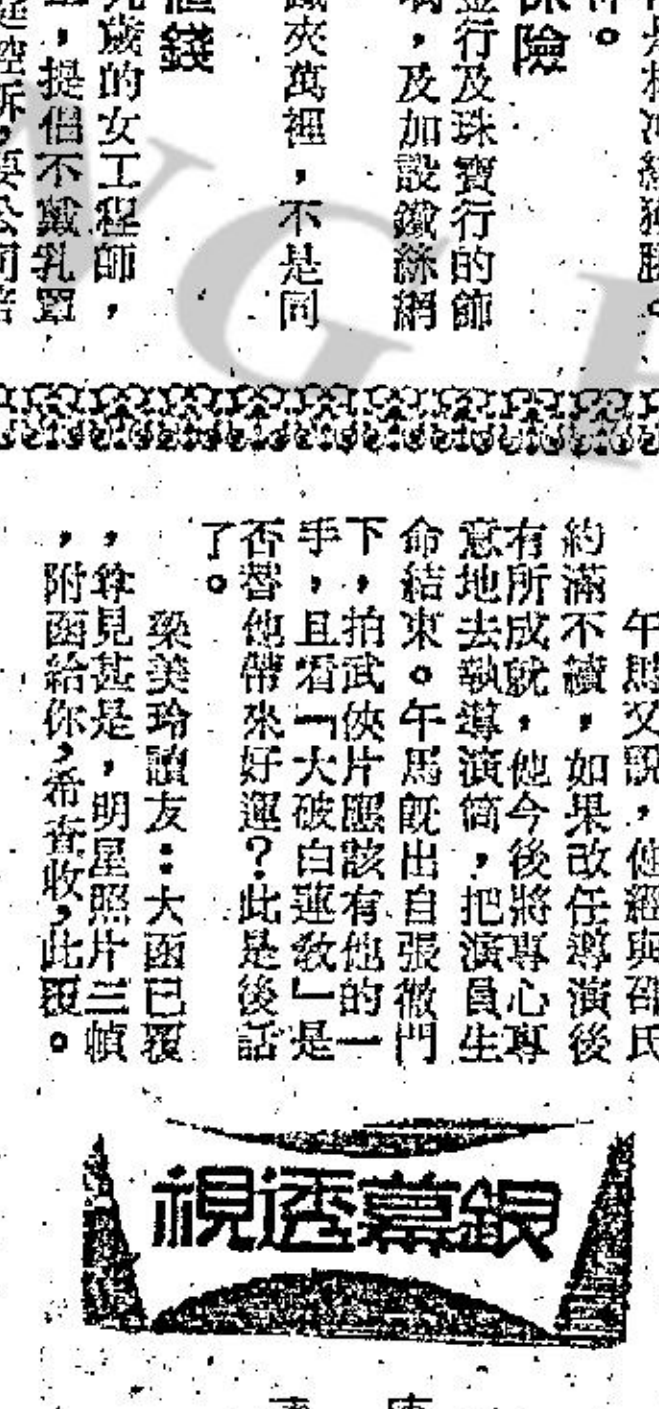 保險
金行及珠寶行的飾
,及加設鐵絲網
鐵夾萬裡,不是同
值錢
歲的女工程師,
,提倡不戴乳罩
午馬又說,他經與邵氏
約滿不續,如果改任導演後
有所成就,他今後將專心專
意地去執導演筒,把演員生
命結束。午馬既出自張徹門
下,拍武俠片應該有他的一
手,且看「大破白蓮教」是
否替他帶來好運?此是後話
了。
梁美玲讀友:大函已覆
,尊見甚是,明星照片三幀
,附函給你,希查收,此覆。
銀幕透視